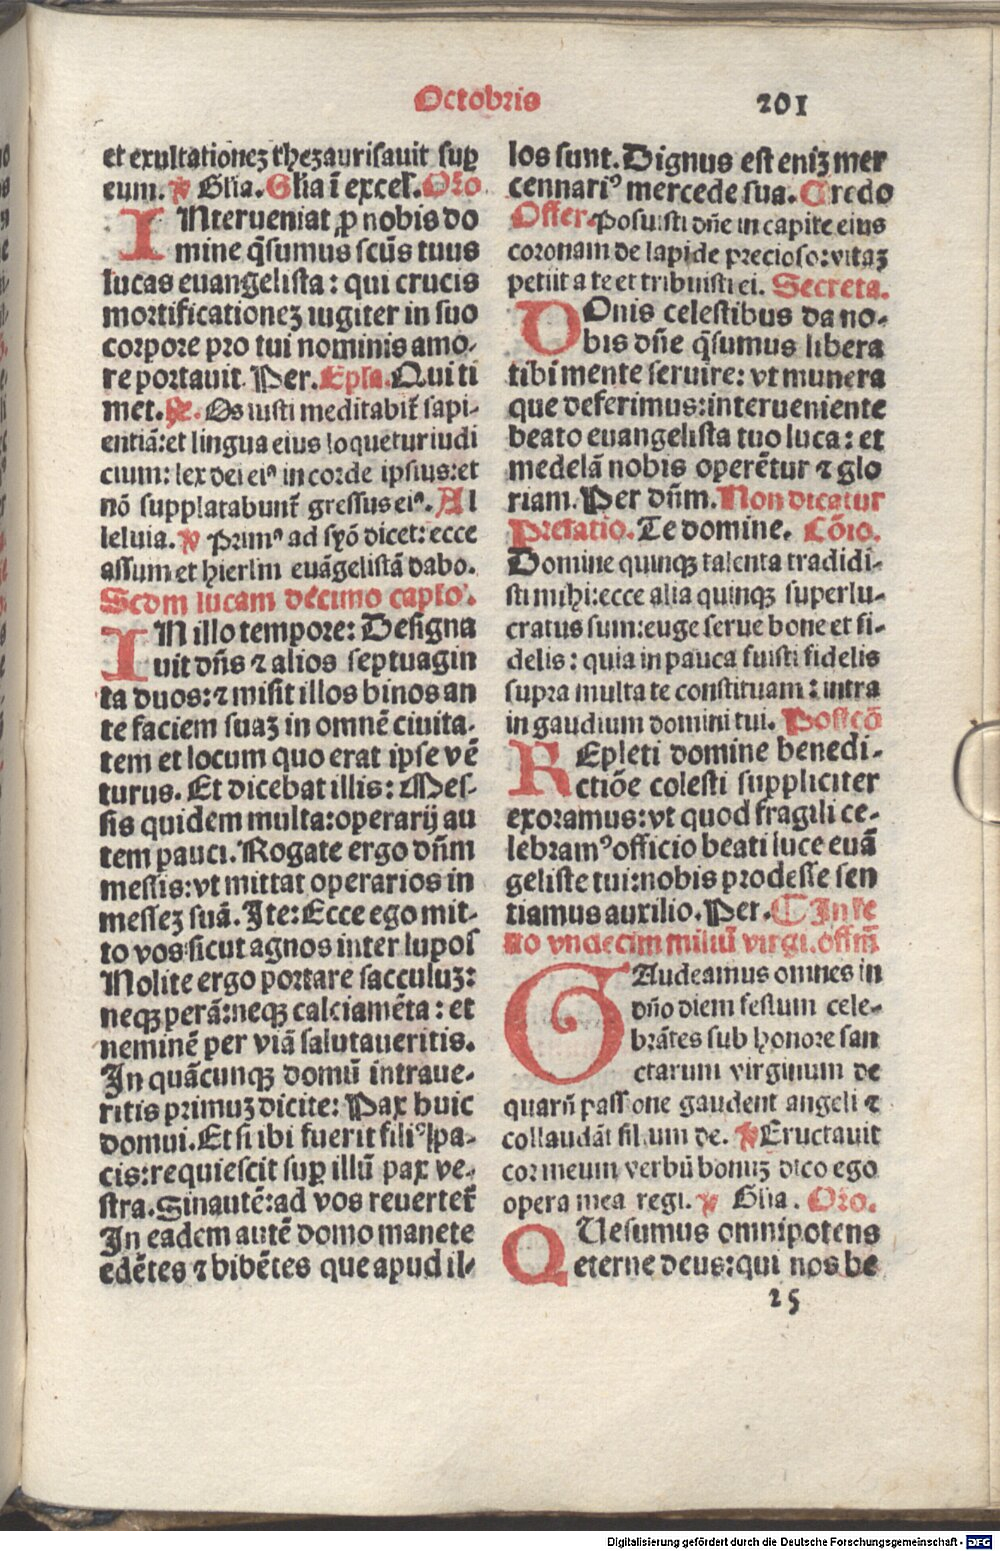 Octobris 201
et exultationeꝫ theꝫaurisauit suꝑ
eum. ℣ Glia. Glia ī excel. Oꝛo
INterueniat ꝓ nobis do
mine q̄sumus scūs tuus
lucas euangelista: qui crucis
moꝛtificationeꝫ iugiter in suo
coꝛpoꝛe pro tui nominis amo-
re poꝛtauit. Per. Epla. Qui ti
met. ℟. Os iusti meditabit̄ sapi-
entiā: et lingua eius loquetur iudi
cium: lex dei eiꝰ in coꝛde ipsius: et
nō supplātabunt̄ gressus eiꝰ. Al
leluia. ℣ Primꝰ ad syō dicet: ecce
assum et hierl̄m euāgelistā dabo.
Scdm lucam decimo caplo.
IN illo tempoꝛe: Designa
uit dn̄s ⁊ alios septuagin
ta duos: ⁊ misit illos binos an
te faciem suaꝫ in omnē ciuita-
tem et locum quo erat ipse vē
turus. Et dicebat illis: Mes-
sis quidem multa: operarij au
tem pauci. Rogate ergo dn̄m
messis: vt mittat operarios in
messeꝫ suā. Ite: Ecce ego mit-
to vos sicut agnos inter lupos
Nolite ergo poꝛtare sacculuꝫ:
neqꝫ perā: neqꝫ calciamēta: et
neminē per viā salutaueritis.
In quācunqꝫ domū intraue-
ritis primuꝫ dicite: Pax huic
domui. Et si ibi fuerit filiꝰ pa-
cis: requiescit suꝑ illū pax ve-
stra. Sin autē: ad vos reuertet̄
In eadem autē domo manete
edētes ⁊ bibētes que apud il-
los sunt. Dignus est eniꝫ mer
cennariꝰ mercede sua. Credo
Offer. Posuisti dn̄e in capite eius
coꝛonam de lapide precioso: vitaꝫ
petiit a te et tribuisti ei. Secreta.
DOnis celestibus da no-
bis dn̄e q̄sumus libera
tibi mente seruire: vt munera
que deferimus: interueniente
beato euangelista tuo luca: et
medelā nobis operētur ⁊ glo
riam. Per dn̄m. Non dicatur
Prefatio. Te domine. Cōio.
Domine quinqꝫ talenta tradidi-
sti mihi: ecce alia quinqꝫ superlu-
cratus sum: euge serue bone et fi-
delis: quia in pauca fuisti fidelis
supra multa te constituam: intra
in gaudium domini tui. Postcō
REpleti domine benedi-
ctiōe celesti suppliciter
exoꝛamus: vt quod fragili ce-
lebramꝰ officio beati luce euā
geliste tui: nobis prodesse sen
tiamus auxilio. Per. ¶ In fe
sto vndecim miliū virgi. offm̄
GAudeamus omnes in
dn̄o diem festum cele-
brātes sub honoꝛe san
ctarum virginum de
quarū passione gaudent angeli ⁊
collaudāt filium de. ℣ Eructauit
coꝛ meum verbū bonuꝫ dico ego
opera mea regi. ℣ Glia. Oꝛo.
QUesumus omnipotens
eterne deus: qui nos be
25
Digitalisierung gefördert durch die Deutsche Forschungsgemeinschaft - DFG